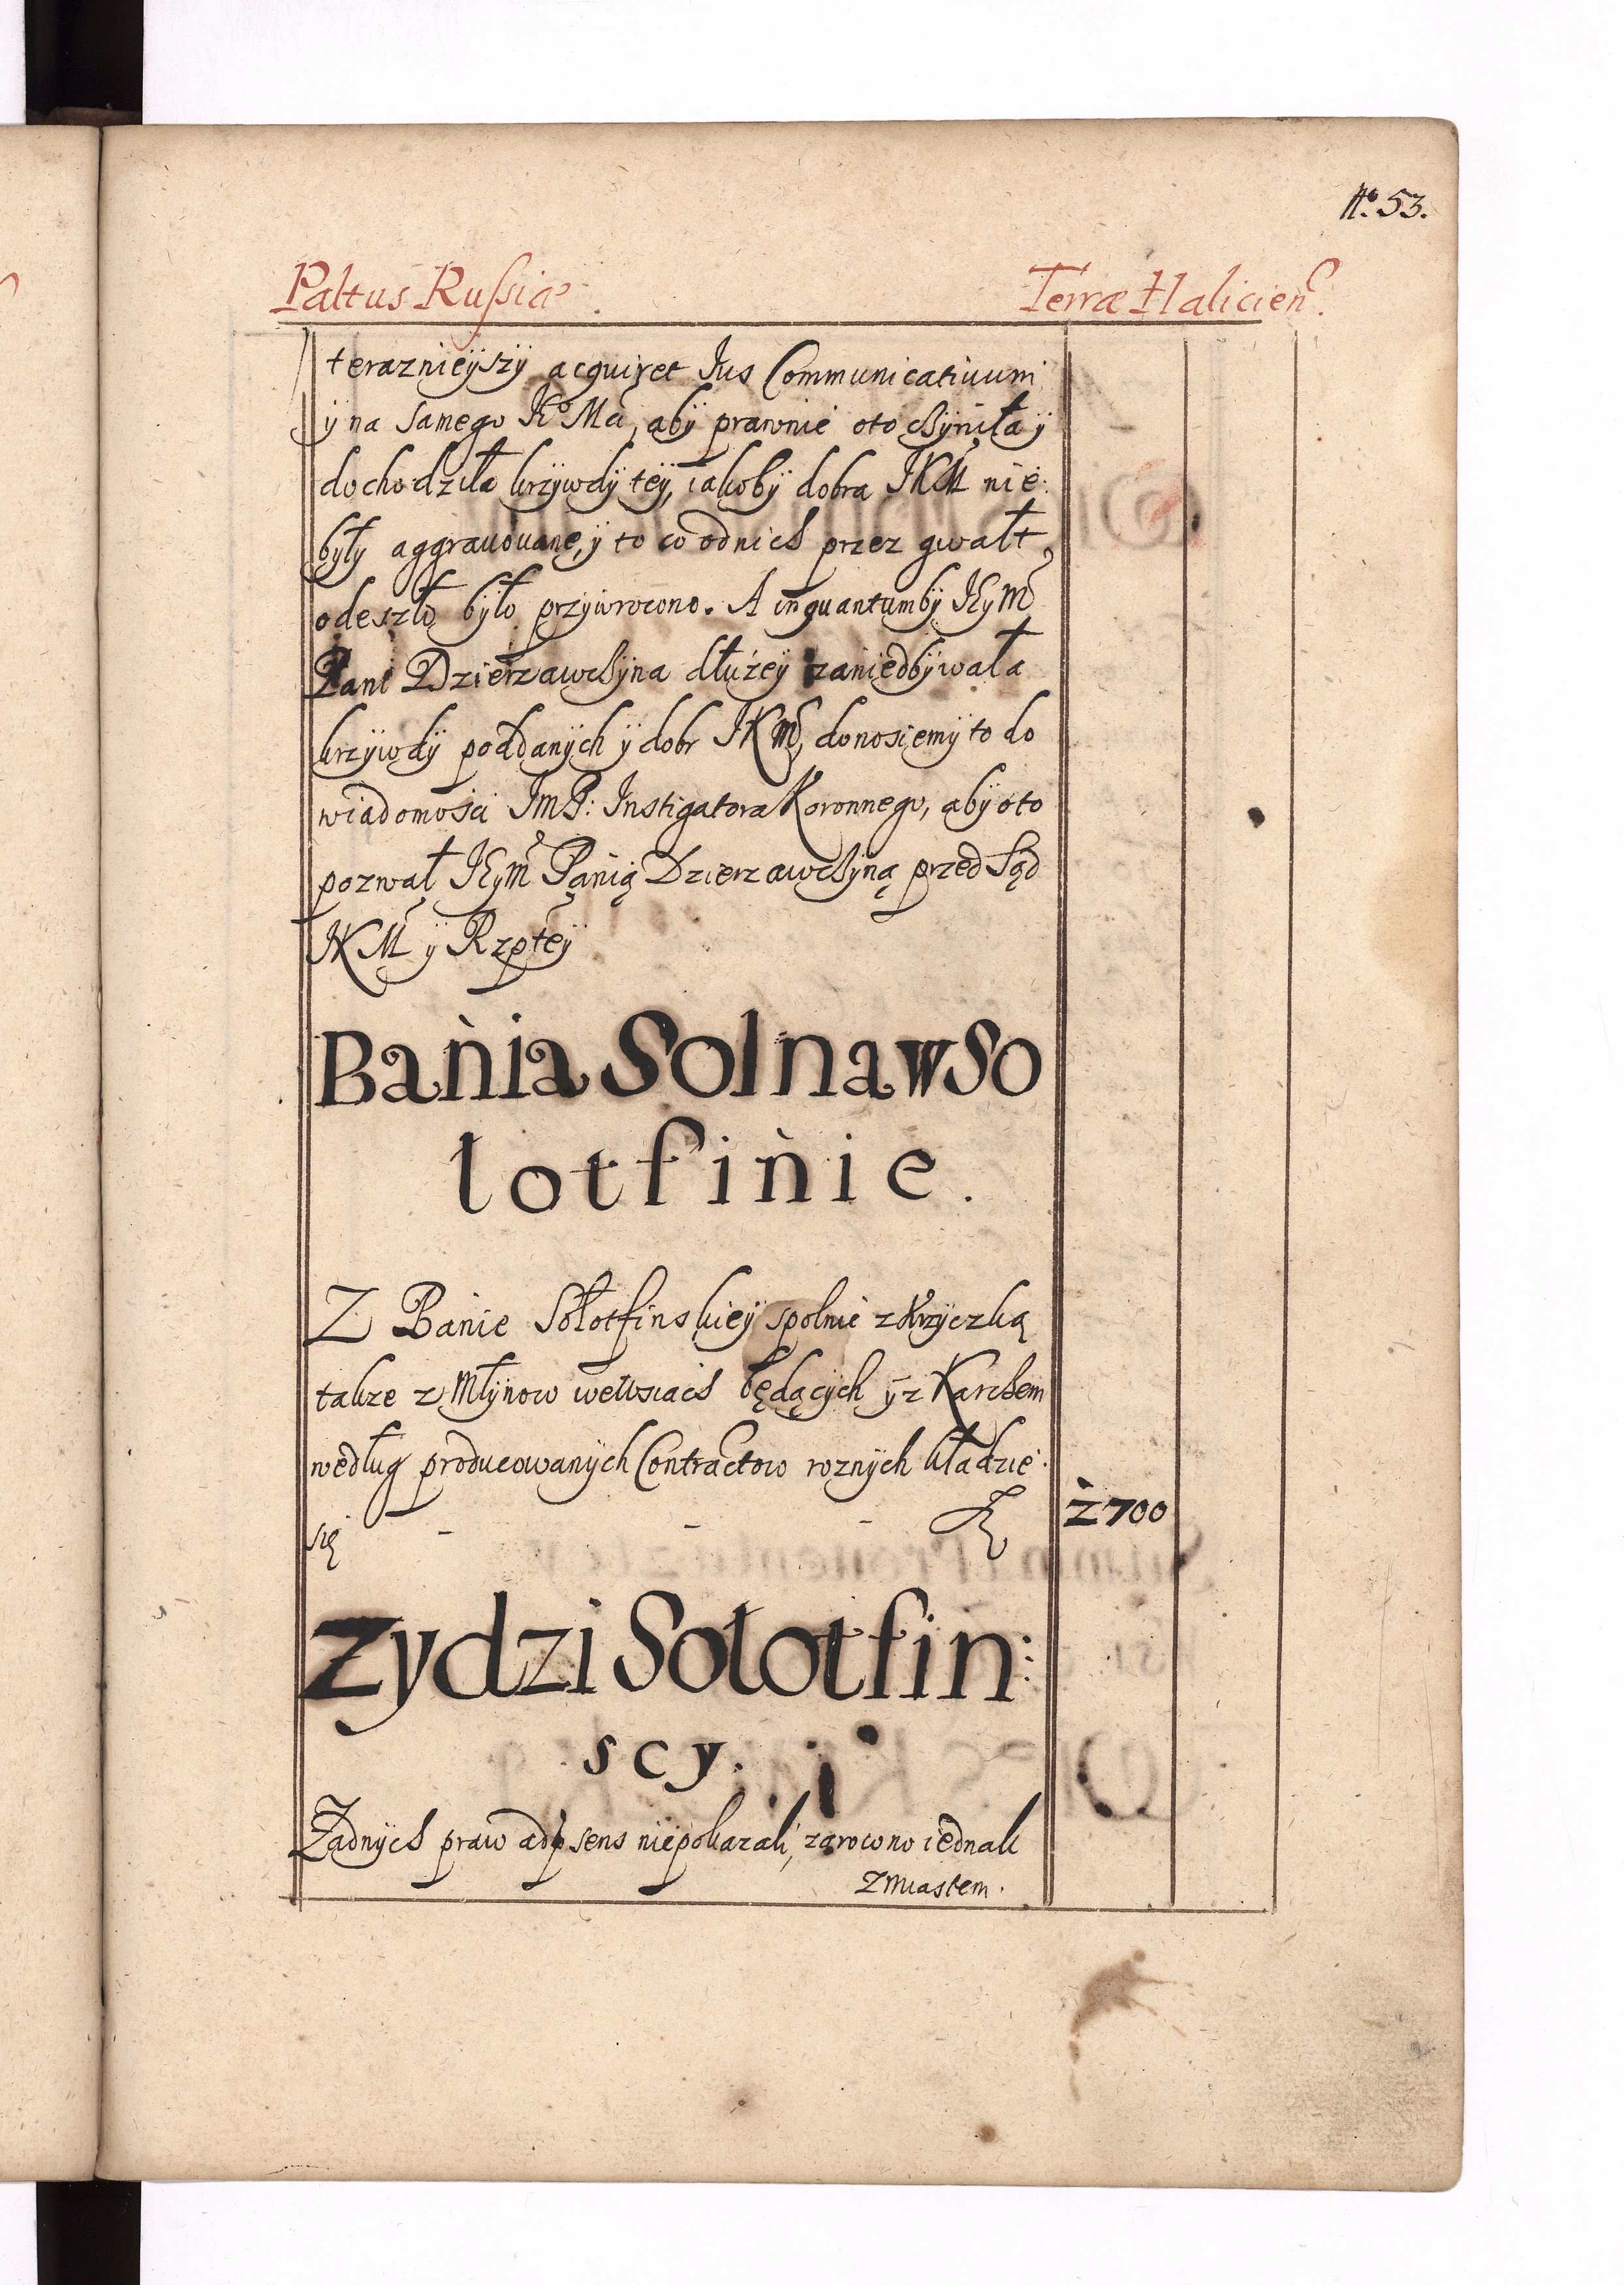 No. 53.
Paltus Russiæ. Terræ Haliciens.
teraznieÿszÿ acquiret Jus Communicatiuum
ÿ na samego Jo Mci, abÿ prawnie oto cżÿniła ÿ
dochodziła krzÿwdÿ teÿ, iakobÿ dobra JKM nie
bÿłÿ aggrauouane, ÿ to co odnich przez gwałt
odeszło bÿło przÿwrocono. A inquantumbÿ JEÿM
Pani Dzierzawcżÿna dłużeÿ zaniedbÿwała
krzÿwdÿ poddanÿch ÿ dobr JKM, donosiemÿ to do
wiadomosci JmP: Instigatora Koronnego, abÿ oto
pozwał JEÿM Panią Dzierzawcżÿną przed Sąd
JKM ÿ Rzptey
Bania Solna w So
lotfinie.
Z Banie Sołotfinskieÿ spolnie z Krzÿczką
takze z Młÿnow wewsiach będącÿch ÿ z Karcżem
według producowanÿch Contractow roznÿch kładzie
się - - - 2700
Zydzi Sołotfin:
scy.
Żadnÿch praw adpsens niepokazali, zarowno iednak
z miastem.